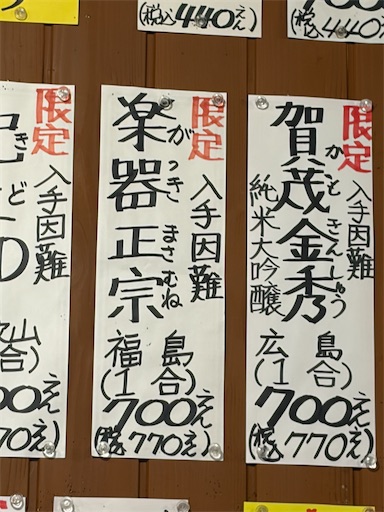 (税込440えん)
(税440
限定
賀茂金秀
かもきんしゅう
入手因難
純米大吟醸
広島
(1合)
700えん
(税770え)
限定
楽器正宗
がっきまさむね
入手因難
福島
(1合)
700えん
(税770え)
限定
入手因難
きど
山
合)
00えん
70え)